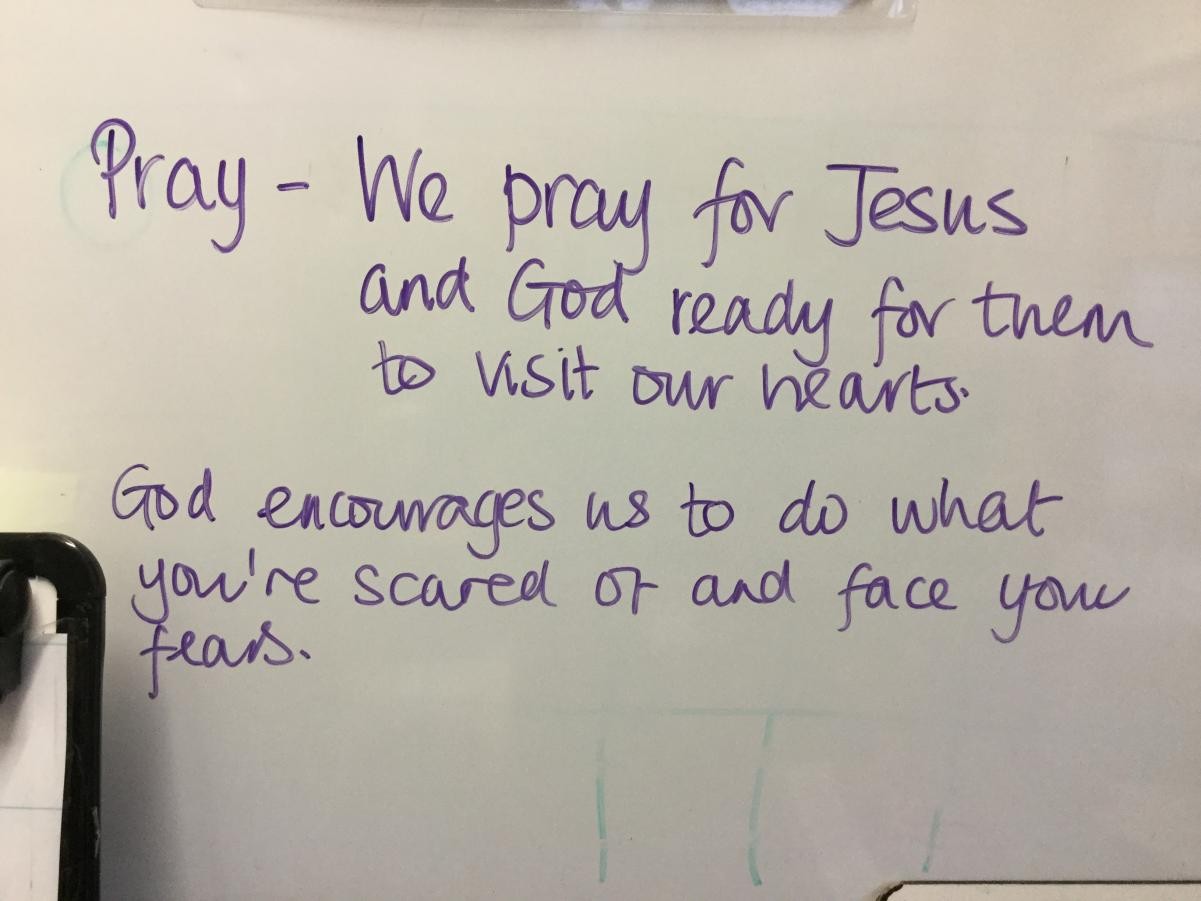 Pray - We pray for Jesus
and God ready for them
to visit our hearts.
God encourages us to do what
you're scared of and face your
fears.